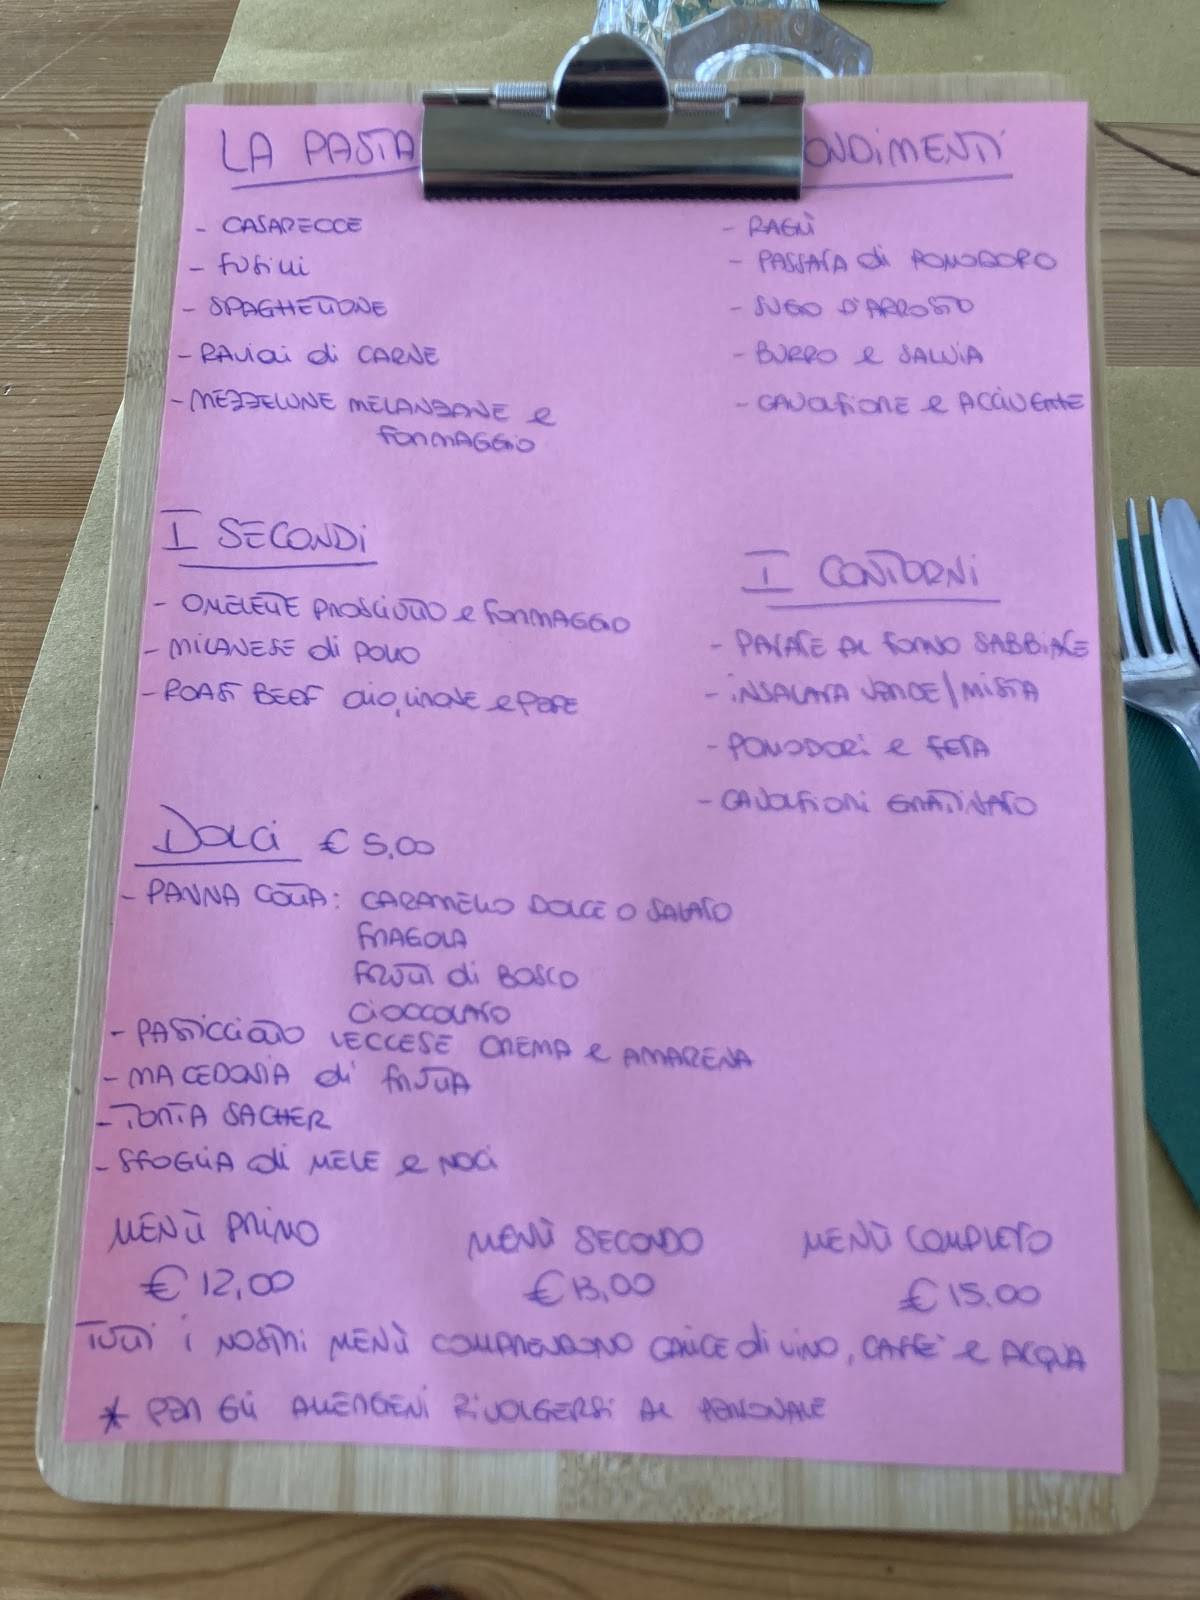 LA PASTA
- CASARECCE
- FUSILLI
- SPAGHETTONE
- RAVIOLI di CARNE
- MEZZELUNE MELANZANE e
FORMAGGIO
ONDIMENTI
- RAGÙ
- PASSATA di POMODORO
- SUGO D'ARROSTO
- BURRO e SALVIA
- CAVOLFIORE e ACCIUGHE
I SECONDI
- OMELETTE PROSCIUTTO e FORMAGGIO
- MILANESE di POLLO
- ROAST BEEF OLIO, LIMONE e PEPE
I CONTORNI
- PATATE AL FORNO SABBIATE
- INSALATA VERDE/MISTA
- POMODORI e FETA
- CAVOLFIORI GRATINATO
DOLCI € 5,00
- PANNA COTTA: CARAMELLO DOLCE O SALATO
FRAGOLA
FRUTTI di BOSCO
CIOCCOLATO
- PASTICCIOTTO LECCESE CREMA e AMARENA
- MACEDONIA di FRUTTA
- TORTA SACHER
- SFOGLIA di MELE e NOCI
MENÙ PRIMO MENÙ SECONDO MENÙ COMPLETO
€ 12,00 € 13,00 € 15.00
TUTTI i NOSTRI MENÙ COMPRENDONO CALICE di VINO, CAFFE' e ACQUA
* PER GLI ALLERGENI RIVOLGERSI AL PERSONALE